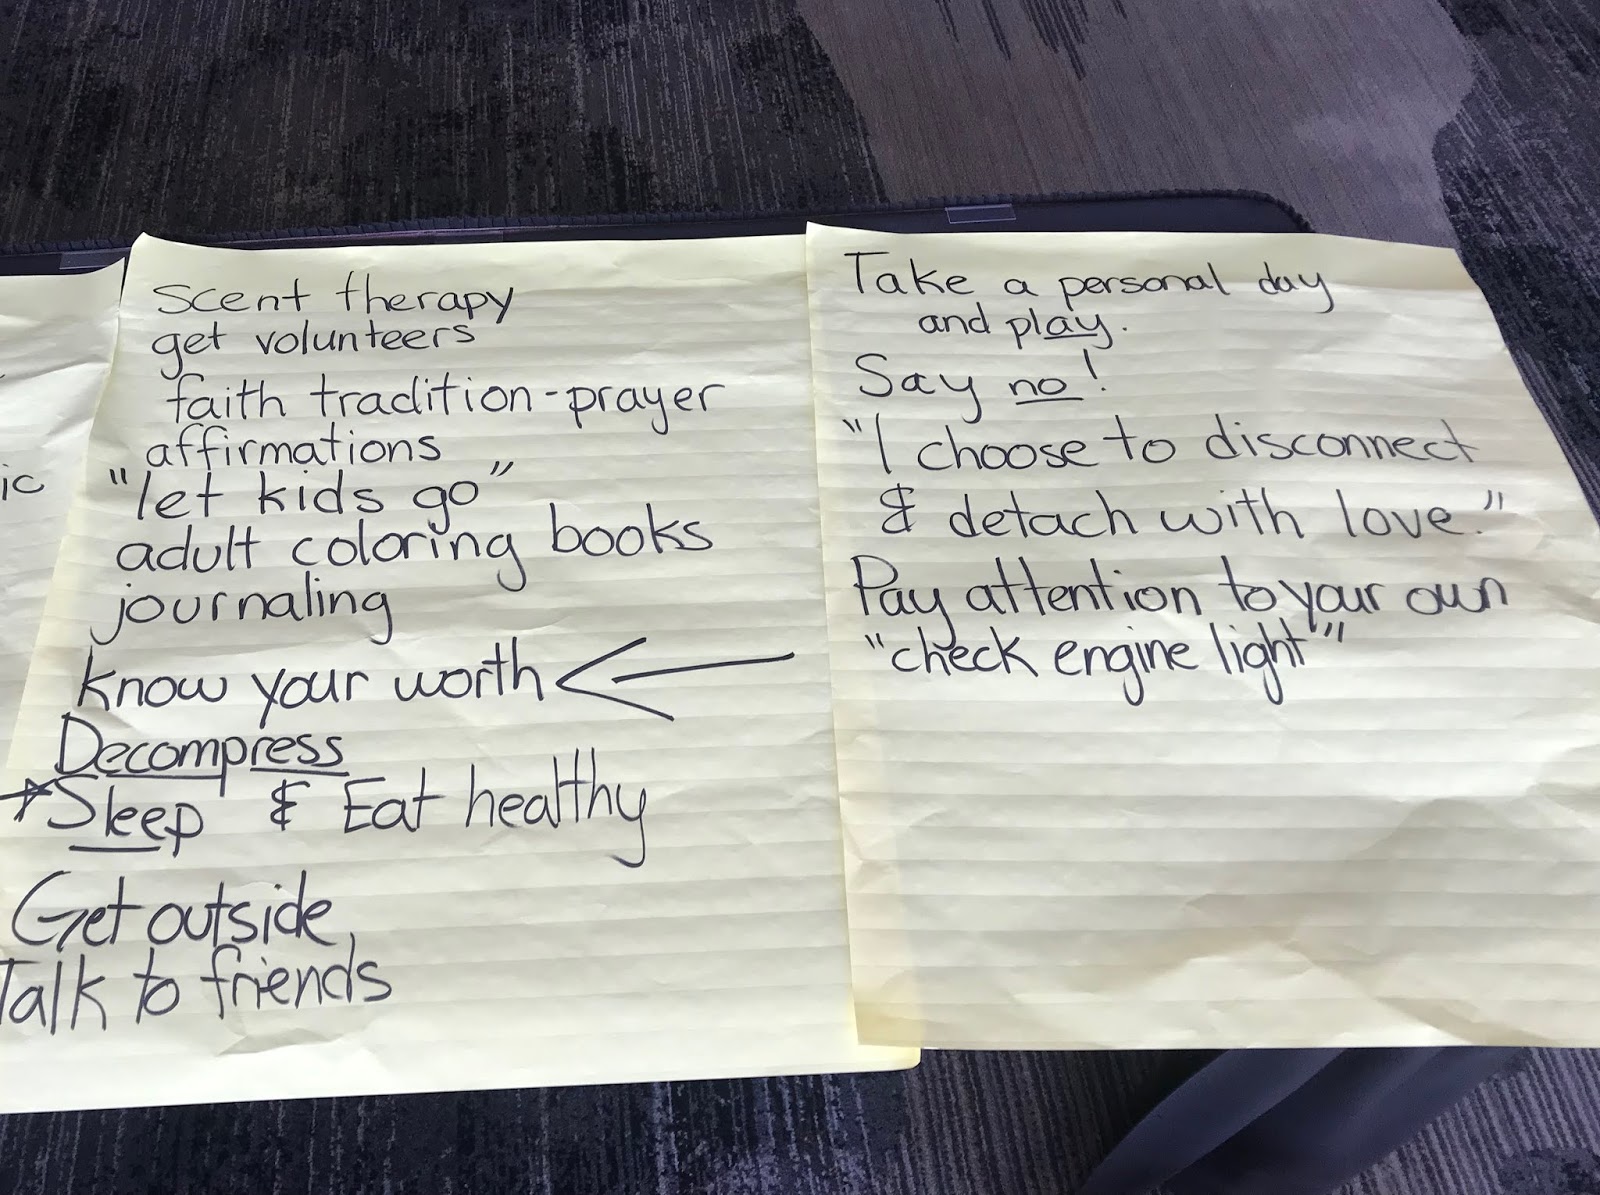 ic
scent therapy
get volunteers
faith tradition - prayer
affirmations
"let kids go"
adult coloring books
journaling
know your worth
Decompress
Sleep & Eat healthy
Get outside,
Talk to friends
Take a personal day
and play.
Say no!
"I choose to disconnect
& detach with love."
Pay attention to your own
"check engine light""